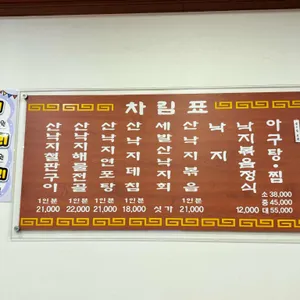 차림표
산낙지철판구이
1인분
21,000
산낙지해물전골
1인분
22,000
산낙지연포탕
1인분
21,000
산낙지데침
1인분
18,000
세발산낙지회
싯가
산낙지볶음
1인분
21,000
낙지
낙지볶음정식
12,000
아구탕·찜
소 38,000
중 45,000
대 55,000